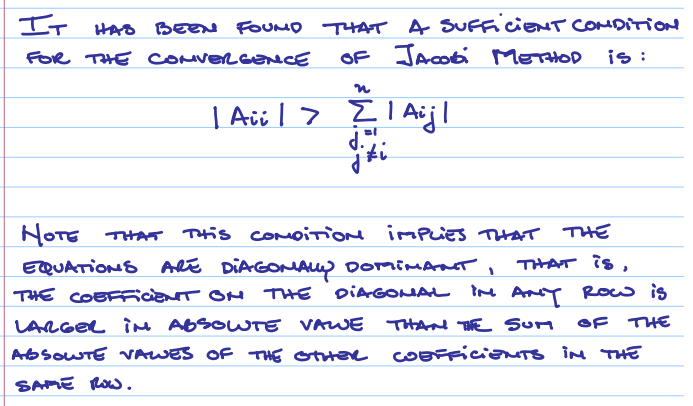 IT HAS BEEN FOUND THAT A SUFFICIENT CONDITION
FOR THE CONVERGENCE OF JACOBI METHOD IS:
|Aii| > n∑j=1 j≠i |Aij|
NOTE THAT THIS CONDITION IMPLIES THAT THE
EQUATIONS ARE DIAGONALLY DOMINANT, THAT IS,
THE COEFFICIENT ON THE DIAGONAL IN ANY ROW IS
LARGER IN ABSOLUTE VALUE THAN THE SUM OF THE
ABSOLUTE VALUES OF THE OTHER COEFFICIENTS IN THE
SAME ROW.